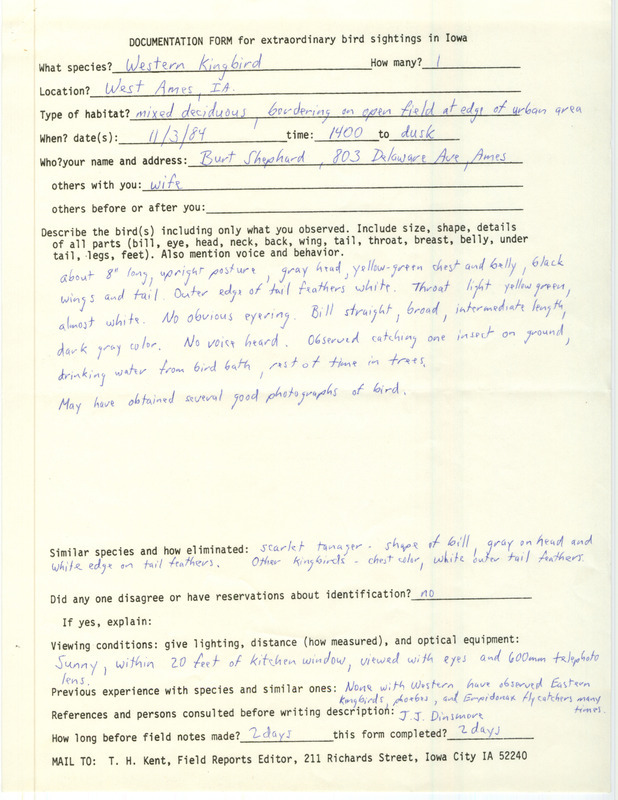 DOCUMENTATION FORM for extraordinary bird sightings in Iowa
What species? Western Kingbird How many? 1
Location? West Ames, IA.
Type of habitat? mixed deciduous, bordering on open field at edge of urban area
When? date(s): 11/3/84 time: 1400 to dusk
Who?your name and address: Burt Shephard, 803 Delaware Ave, Ames
others with you: wife
others before or after you:
Describe the bird(s) including only what you observed. Include size, shape, details
of all parts (bill, eye, head, neck, back, wing, tail, throat, breast, belly, under
tail, legs, feet). Also mention voice and behavior.
about 8" long, upright posture, gray head, yellow-green chest and belly, black
wings and tail. Outer edge of tail feathers white. Throat light yellow green,
almost white. No obvious eyering. Bill straight, broad, intermediate length,
dark gray color. No voice heard. Observed catching one insect on ground,
drinking water from bird bath, rest of time in trees.
May have obtained several good photographs of bird.
Similar species and how eliminated: scarlet tanager - shape of bill, gray on head and
white edge on tail feathers. Other Kingbirds - chest color, white outer tail feathers.
Did any one disagree or have reservations about identification? no
If yes, explain:
Viewing conditions: give lighting, distance (how measured), and optical equipment:
Sunny, within 20 feet of kitchen window, viewed with eyes and 600mm telephoto
lens.
Previous experience with species and similar ones: None with Western have observed Eastern
Kingbirds, phoebes, and Empidonax flycatchers many
times.
References and persons consulted before writing description: J.J. Dinsmore
How long before field notes made? 2 days this form completed? 2 days
MAIL TO: T. H. Kent, Field Reports Editor, 211 Richards Street, Iowa City IA 52240